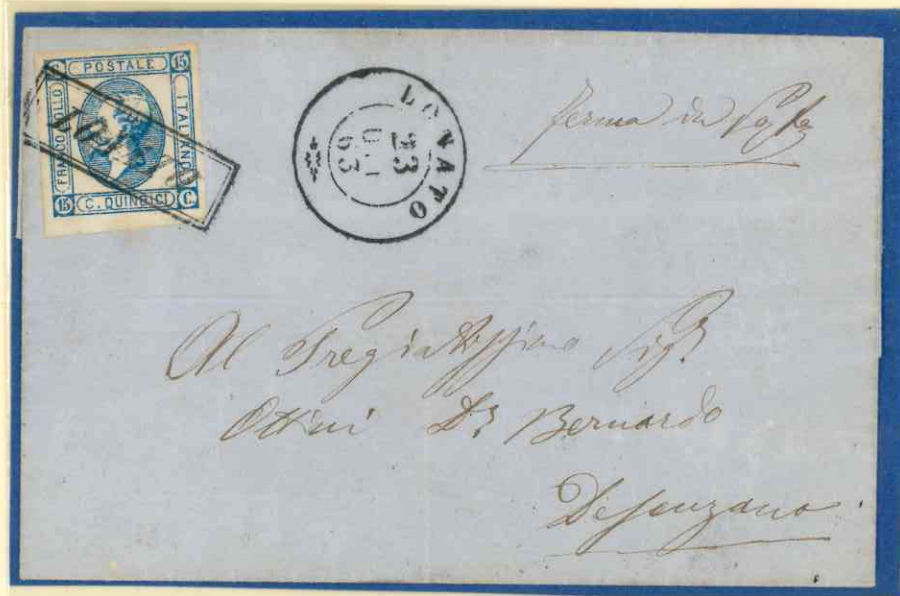 POSTALE
15
FRANCO BOLLO
ITALIANO
15 C. QUINDICI C.
LONATO
LONATO
23
63
ferma in Posta
Al Pregiatissimo Sigr
Ottini Dr Bernardo
Desenzano